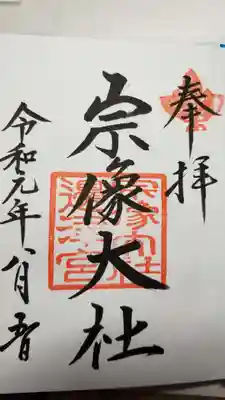 奉拝
宗像大社
宗像大社
邊津宮
令和元年八月五日